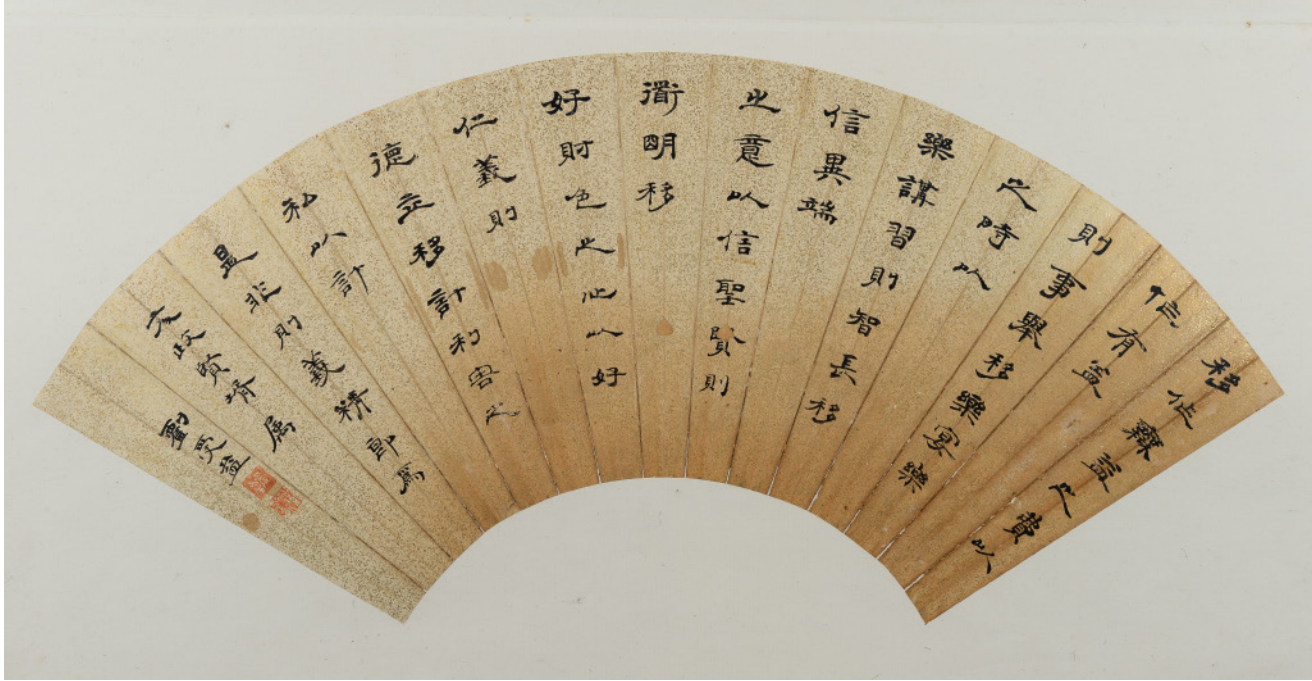 移作無益之費以
作有益
則事舉移樂宴樂
之時以
樂講習則智長移
信異端
之意以信聖賢則
衜明移
好財色之心以好
仁義則
德立移計利害之
私以計
是非則義精
文政賢壻屬
劉受益